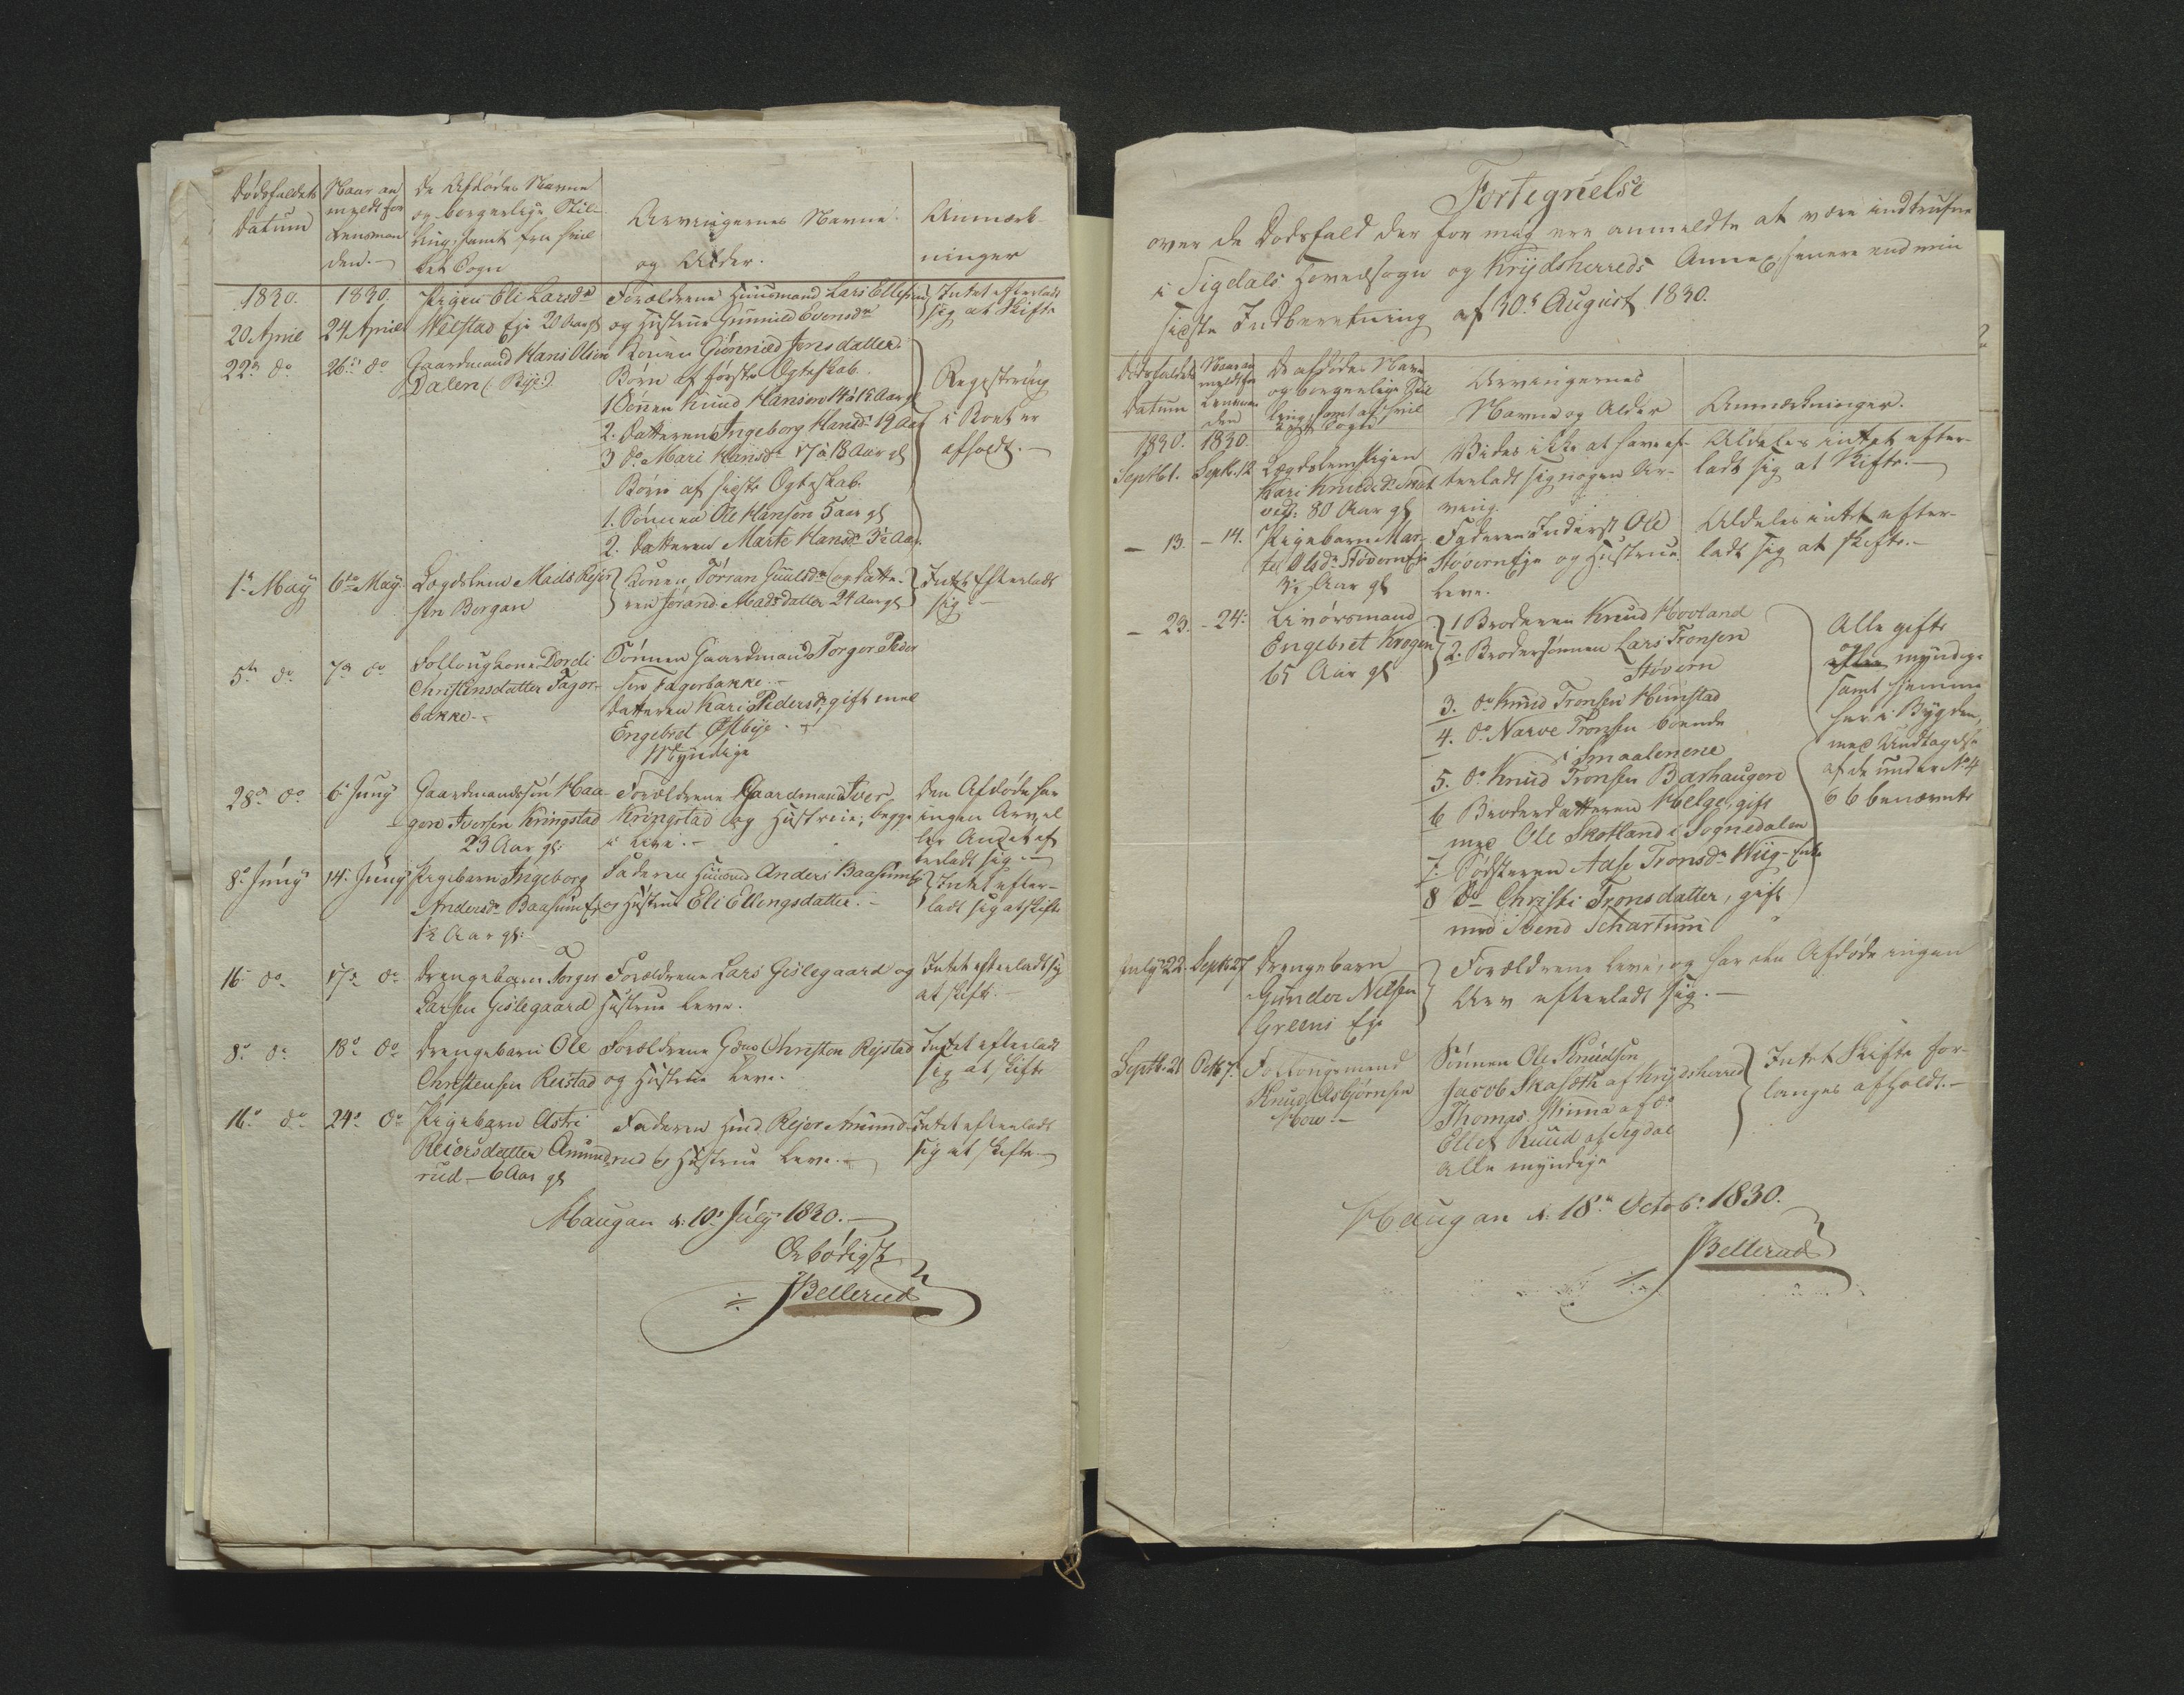 Dødsfaldets
Datum
Naar an
meldt for
Lensman
den.-
De Afdødes Navne
og borgerlige Stil-
ling, samt fra hvil
ket Sogn
Arvingernes Navne
og Alder.
Anmærk-
ninger
1830.
20 April
1830.
24 April
Pigen Eli Larsdr
Welstad Eje 20 Aar gl
Forældrene Huusmand Lars Ellefsen
og Hustrue Gunnild Evensdr
Intet efterladt
sig at Skifte
22de do
26de do
Gaardmand Hans Olsen
Dalen (Bye:)
Konen Giønnild Jonsdatter.
Børn af første Ægteskab.
1 Sønnen Knud Hansen 14 à 15 Aar gl
2. Datteren Ingeborg Hansdr 19 Aar
3 do Mari Hansdr 17 à 18 Aar gl
Børn af sidste Ægteskab.
1. Sønnen Ole Hansen 5 aar gl
2. Datteren Marte Hansdr 3½ Aar.
Registrering
i Boet er
afholdt.-
1de May
6te May
Lægdslem Mads Rejer
sen Bergan
Konen Tørran Guulsdr og Datte-
ren Jørand Madsdatter 24 Aar gl
Intet Efterladt
sig.-
5te do
7de do
Folloughone Dordi
Christensdatter Fager-
bakke.-
Sønnen Gaardmand Torger Peder
sen Fagerbakke.-
Datteren Kari Pedersdr, gift med
Engebret Østbye.-
Myndige
28de do
6te Juny
Gaardmandssøn Haa-
gen Iversen Kringstad
23 Aar gl:
Forældrene Gaardmand Iver
Kringstad og Hustrue, begge
i Live.-
Den Afdøde har
ingen Arv el
ler Andet ef
terladt sig.-
8de Juny
14de Juny
Pigebarn Ingeborg
Andersdr Baasum Eje
1½ Aar gl:
Faderen Huusmd Anders Baasum Eje
og Hustrue Eli Ellingsdatter.-
Intet efter-
ladt sig at skifte
16 do
17de do
Drengebarn Torger
Larsen Gislegaard
Forældrene Lars Gislegaard og
Hustrue leve.
Intet efterladt sig
at skifte.-
8de do
18de do
Drengebarn Ole
Christensen Reistad
Forældrene Gdmd Christen Rejstad
og Hustrue leve.
Intet efterladt
sig at skifte
16de do
24de do
Pigebarn Astri
Reiersdatter Amund
rud - 6 Aar gl
Faderen Hmd Rejer Amund-
rud og Hustrue leve.-
Intet efterladt
sig at skifte.-
Haugan d: 10de July 1830.-
Ærbødigst
JBellerud
Fortegnelse
over de Dødsfald der for mig ere anmeldte at være indtrufne
i Sigdals Hovedsogn og Krydsherreds Annex, senere end min
sidste Indberetning af 30te August 1830.
Dødsfaldets
Datum
Naar an
meldt for
Lensman
den
De afdødes Navne
og borgerlige Stil
ling, samt af hvil
ket Sogn
Arvingernes
Navne og Alder
Anmærkninger.
1830.
Septbr 1.
1830.
Septbr 12
Lægdslem Pigen
Kari Knudsdr
80 Aar gl
Vides ikke at have ef-
terladt sig nogen Ar-
ving.
Aldeles intet efter-
ladt sig at Skifte.-
- 13.
- 14.
Pigebarn Mar-
te Olsdr Støvern Eje
3½ Aar gl
Faderen Inderst Ole
Støvern Eje og Hustrue
leve.
Aldeles intet efter-
ladt sig at skifte.-
- 23.
- 24:
Livørsmand
Engebret Krogen
65 Aar gl
1 Broderen Knud Hovland
2. Brodersønnen Lars Tronsen
Støvern
3. do Knud Tronsen Hunstad
4. do Narve Tronsen boende
i Smaalenene
5. do Knud Tronsen Børhaugen
6 Broderdatteren Helge, gift
med Ole Skotland i Sognedalen
7. Søsteren Aase Tronsdr Wiig - Enke
8 do Christi Tronsdatter, gift
med Svend Schartum
Alle gifte
og myndige
samt hjemme
her i Bygden,
med Undtagelse
af de under No 4
& 6 benævnte
July 22.
Septbr 27
Drengebarn
Gunder Nilsen
Greens Eje
Forældrene leve, og har den Afdøde ingen
Arv efterladt sig.-
Septbr 21
Octbr 7.
Føderaadsmand
Knud Asbjørnsen
Moen.-
Sønnen Ole Knudsen
Jacob Skasæth af Krydsherred
Thomas Skinna af do
Ellef Ruud af Sigdal
alle myndige
Intet Skifte for-
langes afholdt.-
Haugan d: 18de Octobr 1830.
JBellerud